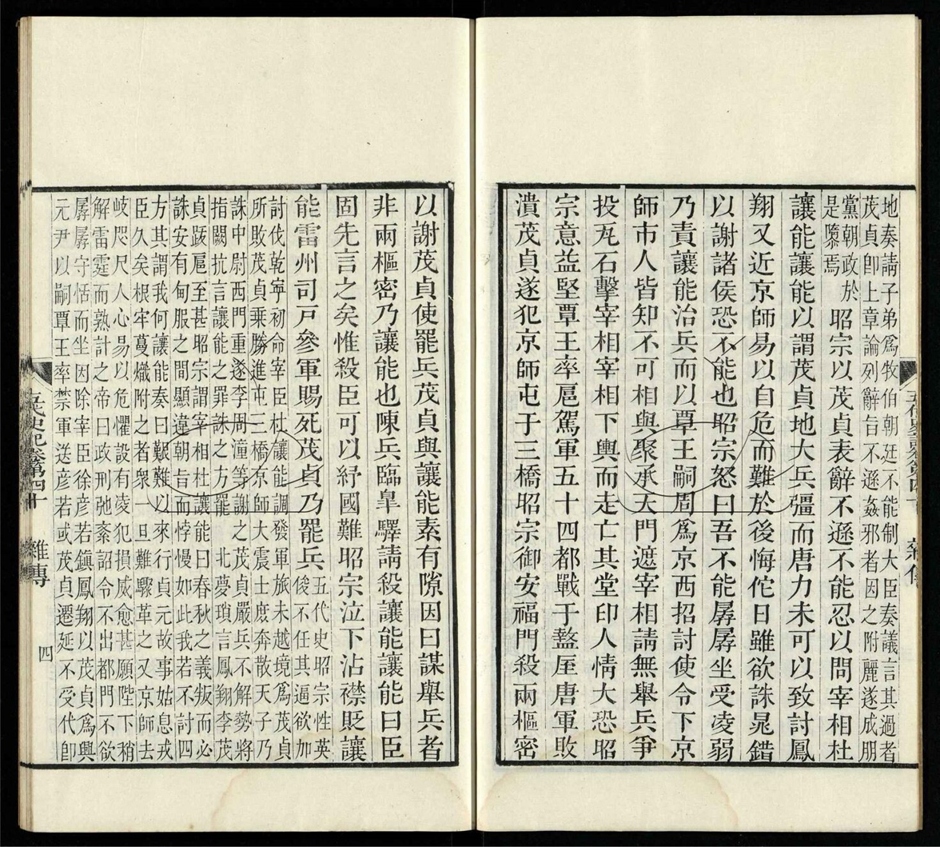 地奏請子弟為牧伯朝廷不能制大臣奏議言其過者
茂貞卽上章論列辭旨不遜姦邪者因之附麗遂成朋
黨朝政於
是隳焉
昭宗以茂貞表辭不遜不能忍以問宰相杜
讓能讓能以謂茂貞地大兵彊而唐力未可以致討鳳
翔又近京師易以自危而難於後悔佗日雖欲誅晁錯
以謝諸侯恐不能也昭宗怒曰吾不能孱孱坐受凌弱
乃責讓能治兵而以覃王嗣周為京西招討使令下京
師市人皆知不可相與聚承天門遮宰相請無舉兵爭
投瓦石擊宰相宰相下輿而走亡其堂印人情大恐昭
宗意益堅覃王率扈駕軍五十四都戰于盩厔唐軍敗
潰茂貞遂犯京師屯于三橋昭宗御安福門殺兩樞密
以謝茂貞使罷兵茂貞與讓能素有隙因曰謀舉兵者
非兩樞密乃讓能也陳兵臨臯驛請殺讓能讓能曰臣
固先言之矣惟殺臣可以紓國難昭宗泣下沾襟貶讓
能雷州司戶參軍賜死茂貞乃罷兵
五代史昭宗性英
俊不任其逼欲加
討伐乾寧初命宰臣杜讓能調發軍旅未越境為茂貞
所敗茂貞乘勝進屯三橋京師大震士庶奔散天子乃
誅中尉西門重遂李周潼等謝之茂貞嚴兵不解勢將
指闕抗言讓能之罪誅之方罷 北夢瑣言鳳翔李茂
貞跋扈至甚昭宗謂宰相杜讓能曰春秋之義叛而必
誅安有甸服之間顯違朝旨而悖慢如此我若不討四
方其謂我何讓能奏曰艱難以來行貞元故事姑息戎
臣久矣根牢蔓熾附之者衆一旦難驟革之又京師去
岐咫尺人心易以危懼設有凌犯損威愈甚願陛下稍
解雷霆而熟計之帝曰政刑弛紊詔令不出都門不欲
孱孱守恬而坐因除宰臣徐彥若鎮鳳翔以茂貞為興
元尹以嗣覃王率禁軍送彥若或茂貞遷延不受代卽
五代史記卷第四十
雜傳
四